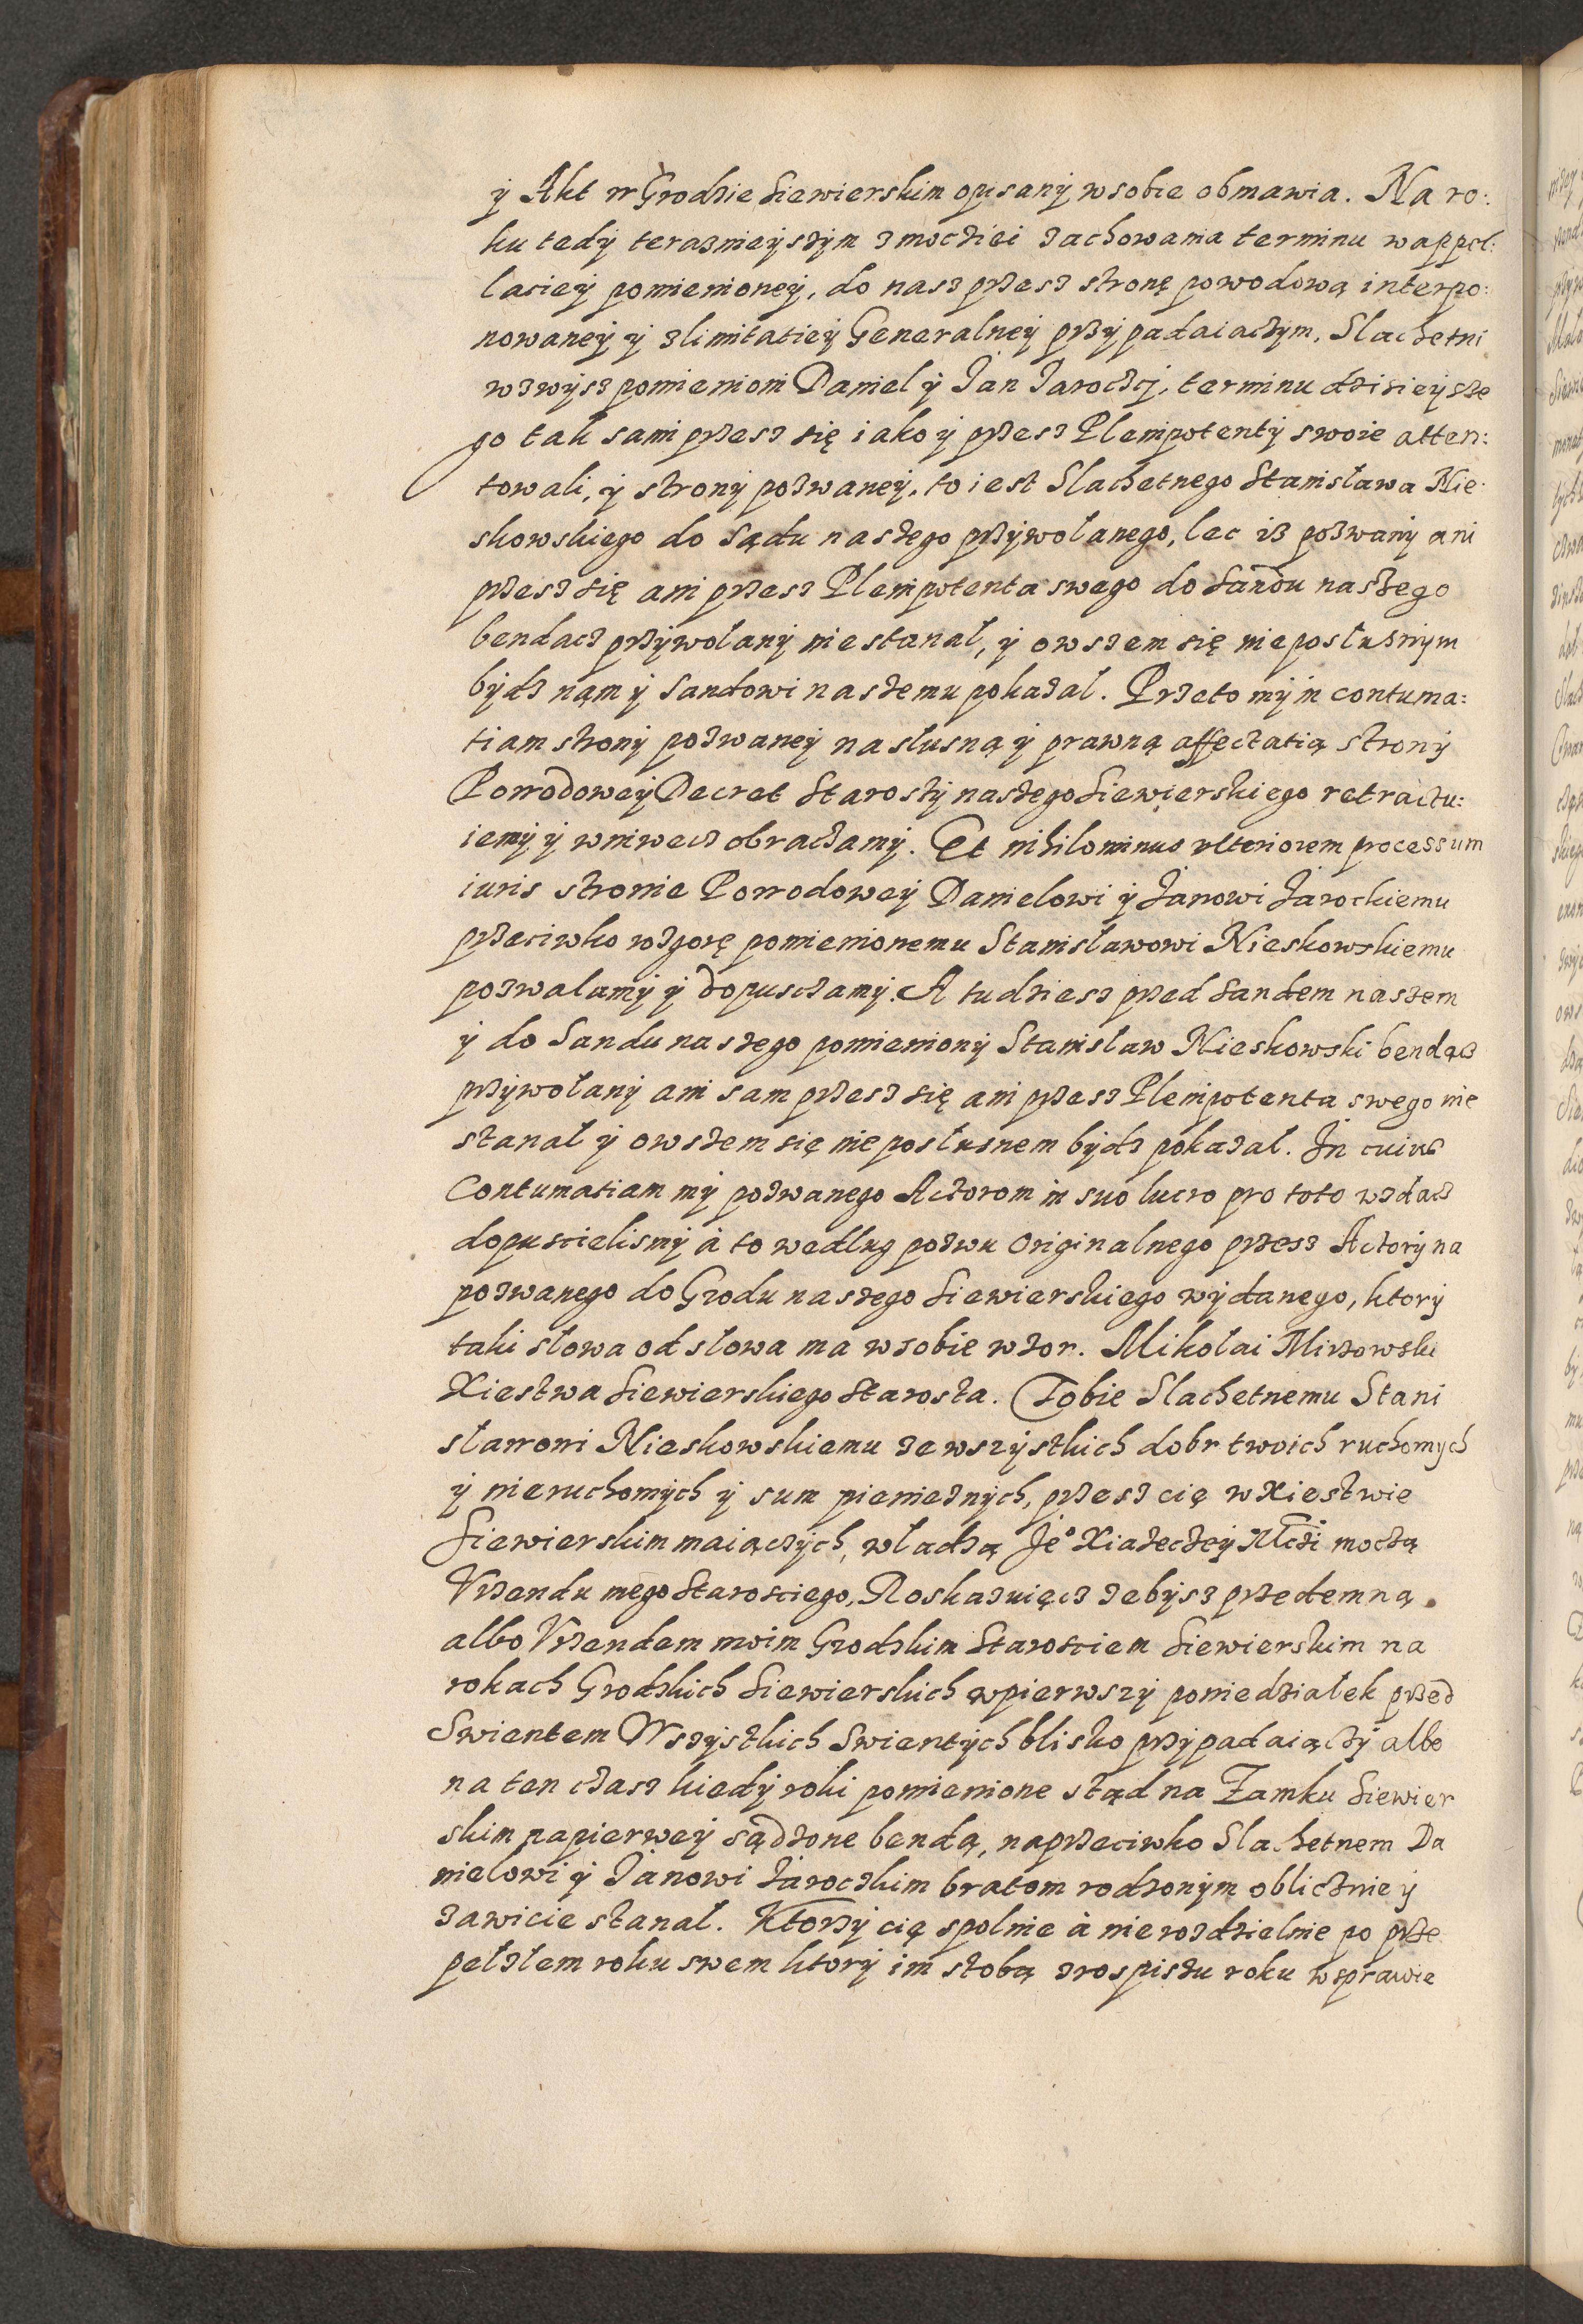 ÿ Akt w Grodzie Siewierskim opisanÿ w sobie obmawia. Na ro:
ku tedÿ terazniejszÿm z moczÿ i zachowania terminu w appel:
laciey pomienioneÿ, do nasz przesz stronę powodową interpo:
nowaneÿ ÿ z limitatieÿ Generalneÿ przÿpadaiaczÿm, Slachetni
wzwÿsz pomienioni Daniel ÿ Jan Jaroczcÿ, terminu dzisieÿsze
go tak sami przesz się iako ÿ przesz Plenipotentÿ swoie atten:
towali, ÿ stronÿ pozwaneÿ, to iest Slachetnego Stanisława Nie:
skowskiego do sądu naszego przÿwołanego, lec iż pozwanÿ ani
przesz się ani przesz Plenipotenta swego do Sandu naszego
bendacz przÿwołanÿ nie stanał, ÿ owszem się nieposłusznÿm
bÿdz nąm ÿ Sandowi naszemu pokazał. Przeto mÿ in contuma:
tiam stronÿ pozwaneÿ na słusną ÿ prawną affectatią stronÿ
Powodoweÿ Decret Starostÿ naszego Siewierskiego retractu:
iemÿ ÿ wniwecz obraczamÿ. Et nihilominus vlteriorem processum
iuris stronie Powodoweÿ Danielowi ÿ Janowi Jarockiemu
przeciwko wzgorę pomienionemu Stanisławowi Nieskowskiemu
pozwalamÿ ÿ dopusczamÿ. A tudziesz przed Sandem naszem
ÿ do Sandu naszego pomienionÿ Stanisław Nieskowski bendącz
przÿwołanÿ ani sam przesz się ani przesz Plenipotenta swego nie
stanał ÿ owszem się nieposłusnem bÿdz pokazał. In cuius
Contumatiam mÿ pozwanego Actorom in suo lucro pro toto wzdacz
dopuscielismÿ à to wedlug pozwu Originalnego przesz Actorÿ na
pozwanego do Grodu naszego Siewierskiego wÿdanego, ktorÿ
taki słowa od słowa ma w sobie wzor. Mikołai Mirzowski
Xiestwa Siewierskiego Starosta. Tobie Slachetnemu Stani
sławowi Nieskowskiemu ze wszÿstkich dobr twoich ruchomych
ÿ nieruchomÿch ÿ sum pieniężnÿch, przesz cię w Xiestwie
Siewierskim maiączÿch, władzą Je° Xiażeczeÿ Mczi moczą
Vrzendu mego Starosciego, Roskazuięcz żebÿsz przedemną
albo Vrzendem moim Grodzkim Starosciem Siewierskim na
rokach Grodzkich Siewierskich w pierwszÿ poniedziałek przed
Swientem Wszÿstkich Swientÿch blisko przÿpadaiączÿ albo
na ten czasz kiedÿ roki pomienione stąd na Zamku Siewier
skim napierweÿ sądzone bendą, naprzeciwko Slachetnem Da
nielowi ÿ Janowi Jaroczkim bratom rodzonÿm oblicznie ÿ
zawicie stanał. Ktorzÿ cię spolnie à nierozdzielnie po prze
pełzłem roku swem ktorÿ im stobą z rospiszu roku w sprawie